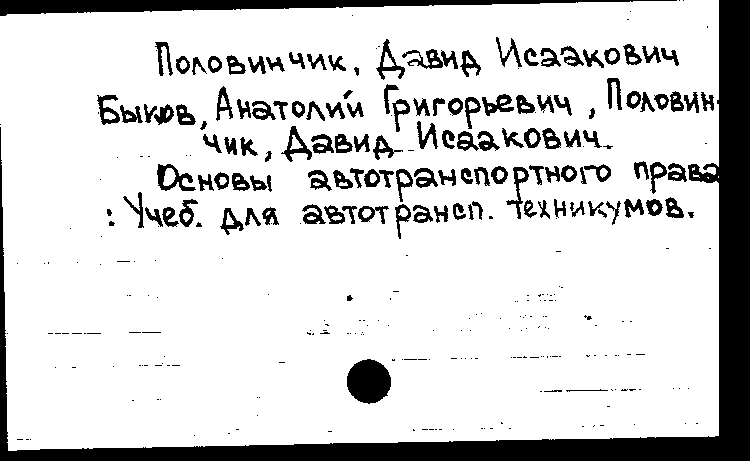 Половинчик, Давид Исаакович
Быков, Анатолий Григорьевич, Половин-
чик, Давид Исаакович.
Основы автотранспортного права
: Учеб. для автотрансп. техникумов.